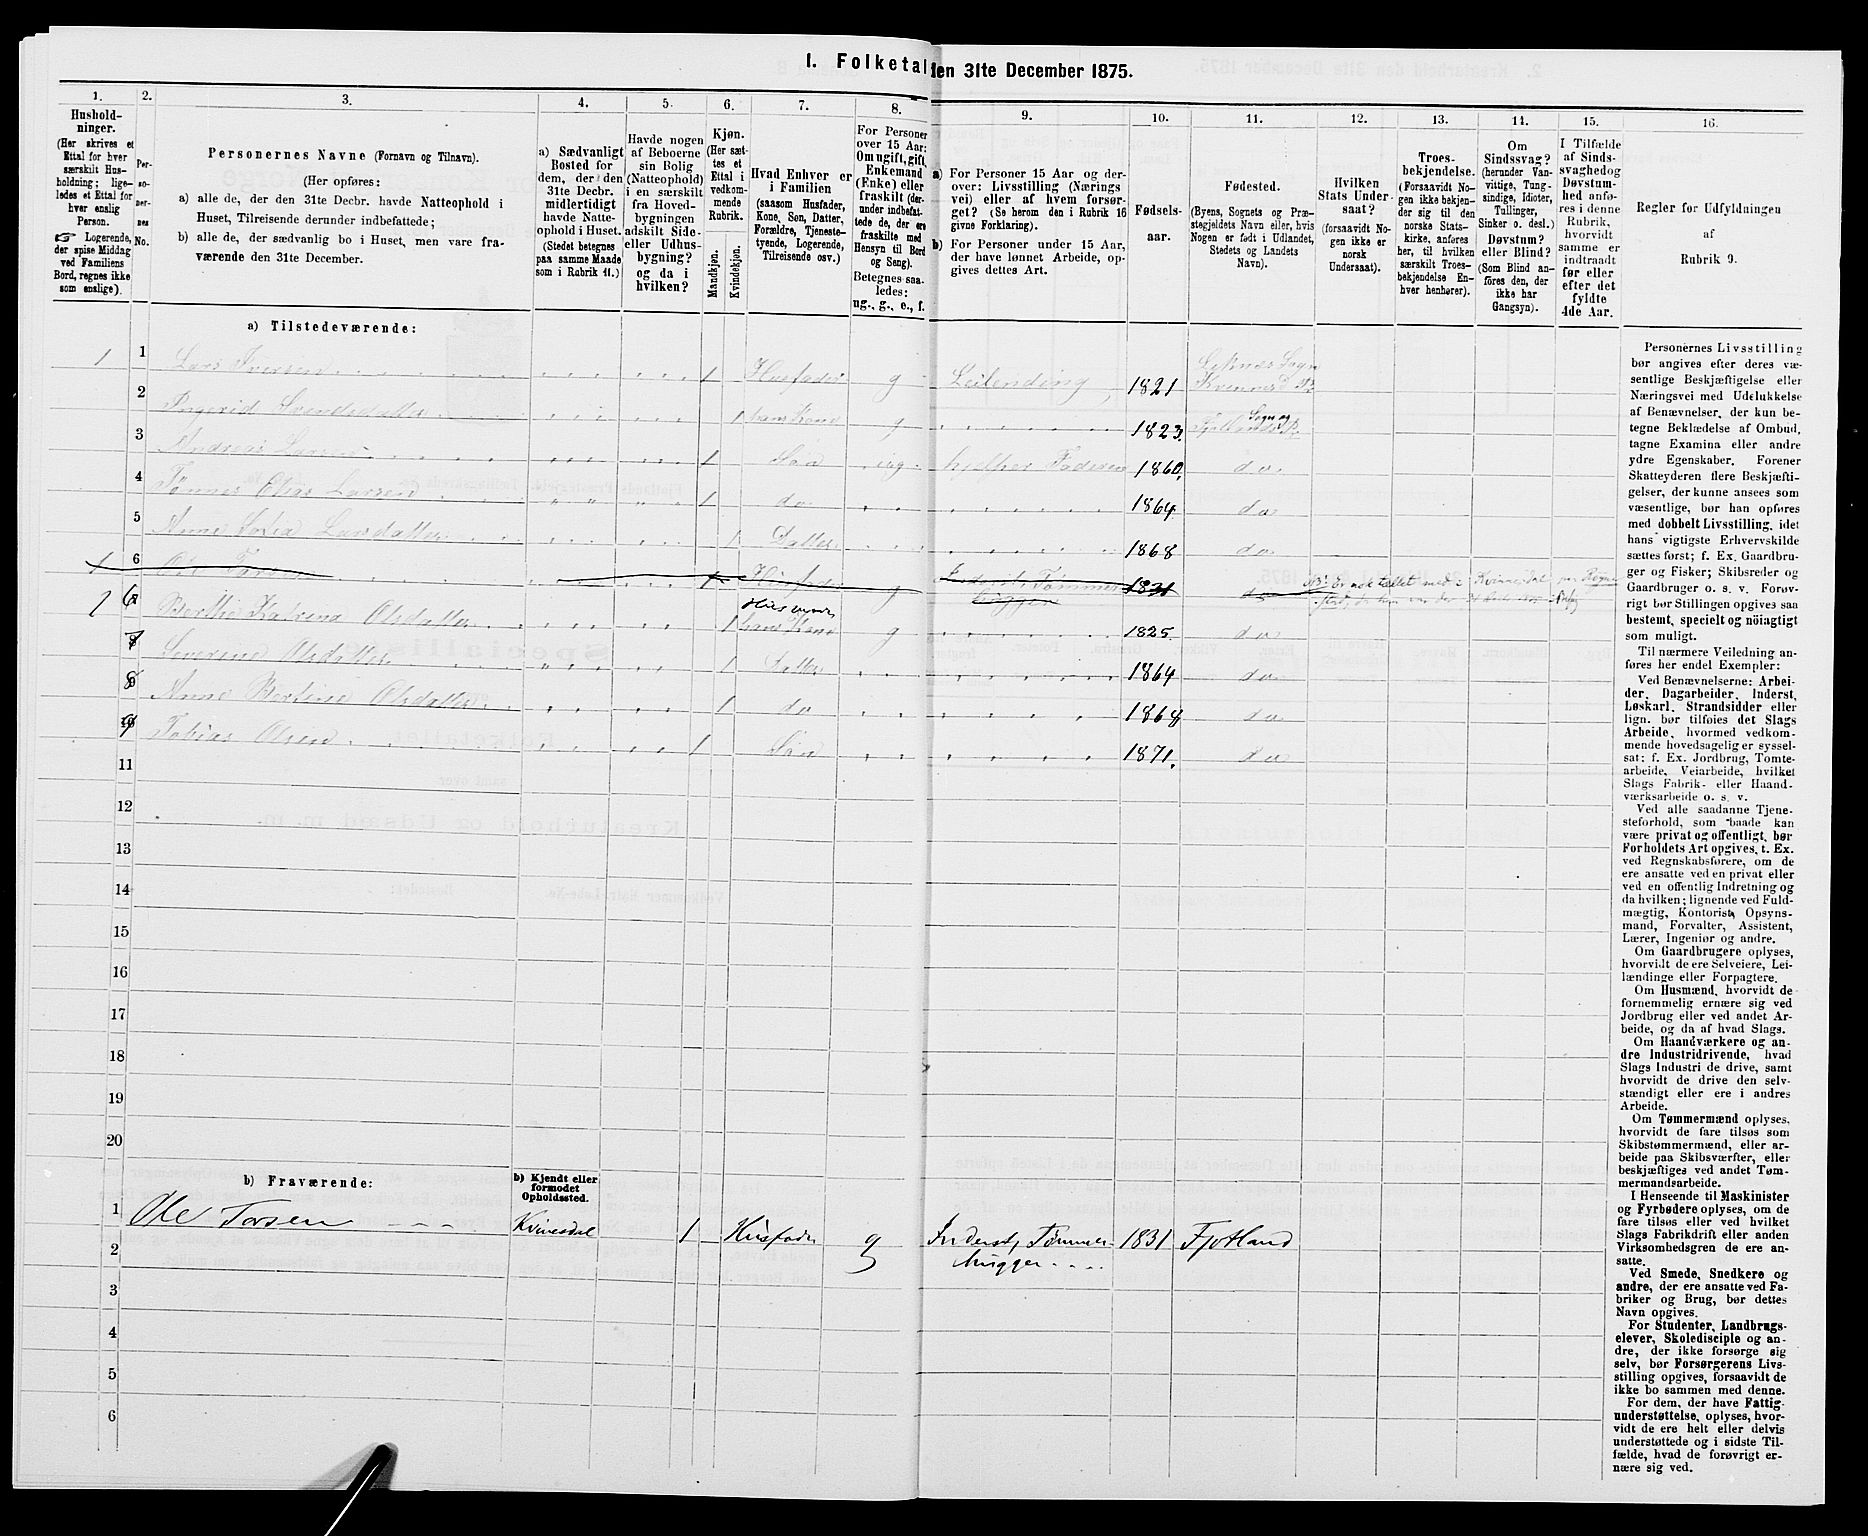 1. Folketal den 31te December 1875.
1.
Hushold-
ninger.
(Her skrives et
Ettal for hver
særskilt Hus-
holdning; lige-
ledes et Ettal for
hver enslig
Person.
☞ Logerende,
der spise Middag
ved Familiens
Bord, regnes ikke
som enslige).
2.
Per-
so-
ner-
nes
No.
3.
Personernes Navne (Fornavn og Tilnavn).
(Her opføres:
a) alle de, der den 31te Decbr. havde Natteophold i
Huset, Tilreisende derunder indbefattede;
b) alle de, der sædvanlig bo i Huset, men vare fra-
værende den 31te December.
4.
a) Sædvanligt
Bosted for
dem, der den
31te Decbr.
midlertidigt
havde Natte-
ophold i Huset.
(Stedet betegnes
paa samme Maade
som i Rubrik 11.)
5.
Havde nogen
af Beboerne
sin Bolig
(Natteophold)
i en særskilt
fra Hoved-
bygningen
adskilt Side-
eller Udhus-
bygning?
og da i
hvilken?
6.
Kjøn.
(Her sæt-
tes et
Ettal i
vedkom-
mende
Rubrik.
Mandkjøn.
Kvindekjøn.
7.
Hvad Enhver er
i Familien
(saasom Husfader,
Kone, Søn, Datter,
Forældre, Tjeneste-
tyende, Logerende,
Tilreisende osv.)
8.
For Personer
over 15 Aar:
Om ugift, gift,
Enkemand
(Enke) eller
fraskilt (der-
under indbefat-
tede de, der ere
fraskilte med
Hensyn til Bord
og Seng).
Betegnes saa-
ledes:
ug., g., e., f.
9.
a) For Personer 15 Aar og der-
over: Livsstilling (Nærings
vei) eller af hvem forsør-
get? (Se herom den i Rubrik 16
givne Forklaring).
b) For Personer under 15 Aar,
der have lønnet Arbeide, op-
gives dettes Art.
10.
Fødsels-
aar.
11.
Fødested.
(Byens, Sognets og Præ-
stegjeldets Navn eller, hvis
Nogen er født i Udlandet,
Stedets og Landets
Navn).
12.
Hvilken
Stats Under-
saat?
(forsaavidt No-
gen ikke er
norsk
Undersaat).
13.
Troes-
bekjendelse.
(Forsaavidt No-
gen ikke bekjen-
der sig til den
norske Stats-
kirke, anføres
her, til hvilken
særskilt Troes-
bekjendelse En-
hver henhører).
14.
Om
Sindssvag?
(herunder Van-
vittige, Tung-
sindige, Idioter,
Tullinger,
Sinker o. desl.)
Døvstum?
eller Blind?
(Som Blind an-
føres den, der
ikke har
Gangsyn).
15.
I Tilfælde
af Sinds-
svaghed og
Døvstum-
hed anfø-
res i denne
Rubrik,
hvorvidt
samme er
indtraadt
før eller
efter det
fyldte
4de Aar.
16.
Regler for Udfyldningen
af
Rubrik 9.
a) Tilstedeværende:
1 1 Lars Iversen 1 Husfader g Leilending 1821 Kvinnesd. Pr.
2 Ingerid Svendsdatter 1 hans Kone g 1823. Fjotlands Sogn og Pr.
3 Andreas Larsen 1 Søn ug hjelper Faderen 1860. do.
4 Tønnes Elias Larsen 1 do 1864. do
5 Anne Sofia Larsdatter 1 Datter 1868 do
1 6 Ole Torsen 1 Husfader g Inderst, Tømmerhugger 1831 do
1 6 Berthe Katrina Olsdatter 1 Husmoder hans Kone g 1825 do
7 Severine Olsdatter 1 Datter 1864 do
8 Anne Bertine Olsdatter 1 do 1868 do
9 Tobias Olsen 1 Søn 1871. do
11
12
13
14
15
16
17
18
19
20
b) Fraværende:
b) Kjendt eller
formodet
Opholdssted.
1 Ole Torsen Kvinesdal 1 Husfader g Inderst, Tømmer- 1831 Fjotland
2 hugger
3
4
5
6
Personernes Livsstilling
bør angives efter deres væ-
sentlige Beskjæftigelse eller
Næringsvei med Udelukkelse
af Benævnelser, der kun be-
tegne Beklædelse af Ombud,
tagne Examina eller andre
ydre Egenskaber. Forener
Skatteyderen flere Beskjæfti-
gelser, der kunne ansees som
væsentlige, bør han opføres
med dobbelt Livsstilling, idet
hans vigtigste Erhvervskilde
sættes først; f. Ex. Gaardbru-
ger og Fisker; Skibsreder og
Gaardbruger o. s. v. Forøv-
rigt bør Stillingen opgives saa
bestemt, specielt og nöiagtigt
som muligt.
Til nærmere Veiledning an-
føres her endel Exempler:
Ved Benævnelserne: Arbei-
der, Dagarbeider, Inderst,
Løskarl, Strandsidder eller
lign. bør tilføies det Slags
Arbeide, hvormed vedkom-
mende hovedsagelig er syssel-
sat; f. Ex. Jordbrug, Tomte-
arbeide, Veiarbeide, hvilket
Slags Fabrik- eller Haand-
værksarbeide o. s. v.
Ved alle saadanne Tjene-
steforhold, som baade kan
være privat og offentligt, bør
Forholdets Art opgives, t. Ex.
ved Regnskabsførere, om de
ere ansatte ved en privat eller
ved en offentlig Indretning og
da hvilken; lignende ved Fuld-
mægtig, Kontorist, Opsyns-
mand, Forvalter, Assistent,
Lærer, Ingeniør og andre.
Om Gaardbrugere oplyses,
hvorvidt de ere Selveiere, Lei-
lændinge eller Forpagtere.
Om Husmænd, hvorvidt de
fornemmelig ernære sig ved
Jordbrug eller ved andet Ar-
beide, og da af hvad Slags.
Om Haandværkere og an-
dre Industridrivende, hvad
Slags Industri de drive, samt
hvorvidt de drive den selv-
stændigt eller ere i andres
Arbeide.
Om Tømmermænd oplyses,
hvorvidt de fare tilsøs som
Skibstømmermænd, eller ar-
beide paa Skibsværfter, eller
beskjæftiges ved andet Tøm-
mermandsarbeide.
I Henseende til Maskinister
og Fyrbødere oplyses, om de
fare tilsøs eller ved hvilket
Slags Fabrikdrift eller anden
Virksomhedsgren de ere an-
satte.
Ved Smede, Snedkere og
andre, der ere ansatte ved Fa-
briker og Brug, bør dettes
Navn opgives.
For Studenter, Landbrugs-
elever, Skoledisciple og an-
dre, der ikke forsørge sig
selv, bør Forsørgerens Livs-
stilling opgives, forsaavidt de
ikke bo sammen med denne.
For dem, der have Fattig-
understøttelse, oplyses, hvor-
vidt de ere helt eller delvis
understøttede og i sidste Til-
fælde, hvad de forøvrigt er-
nære sig ved.